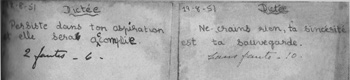 8-51 Dictée
Persiste dans ton aspiration
et elle sera accomplie
2 fautes - 6.
19-8-51 Dictée
Ne crains rien, ta sincérité
est ta sauvegarde.
Sans faute. 10.